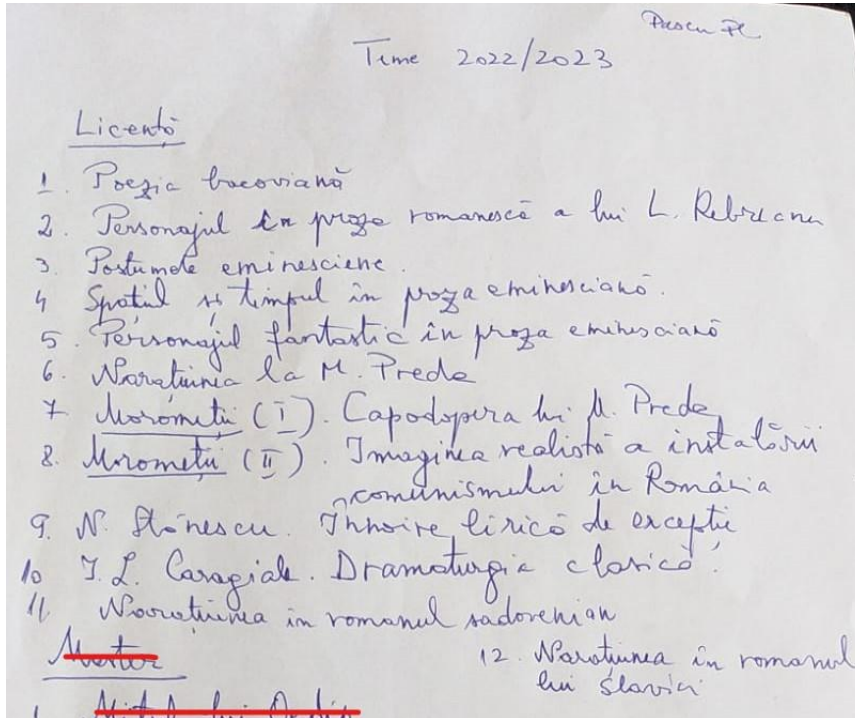 Pascu Fl
Teme 2022/2023
Licență
1. Poezia bacoviană
2. Personajul în proza romanescă a lui L. Rebreanu
3. Postumele eminesciene.
4 Spațiul și timpul în proza eminesciană.
5. Personajul fantastic în proza eminesciană
6. Narațiunea la M. Preda
7 Moromeții (I). Capodopera lui M. Preda
8. Moromeții (II). Imaginea realistă a instalării
comunismului în România
9. N. Stănescu. Înnoire lirică de excepție
10 I. L. Caragiale. Dramaturgia clasică.
11 Narațiunea în romanul sadovenian
12. Narațiunea în romanul
lui Slavici
Master
1. Mitul lui Oedip